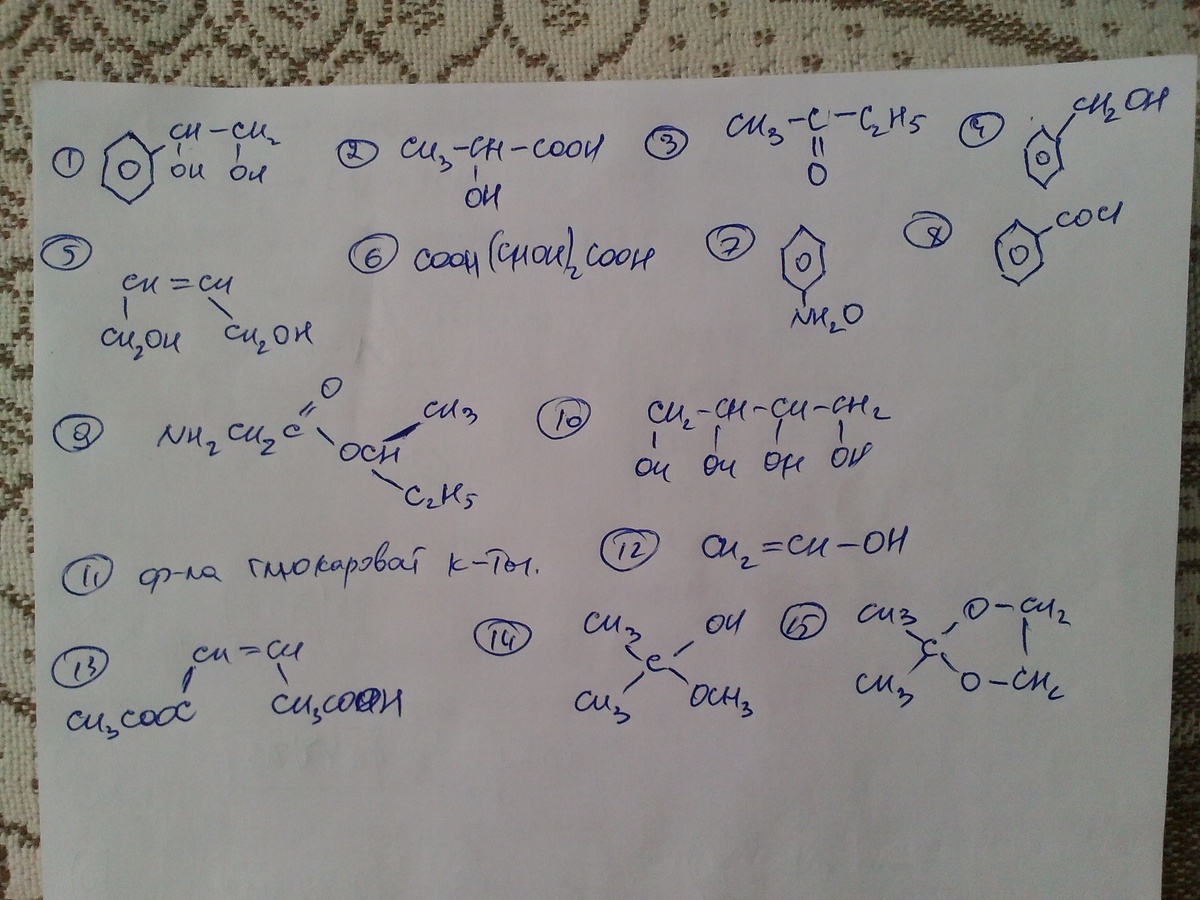 ① CH – CH₂
OH OH
② CH₃ – CH – COOH
OH
③ CH₃ – C – C₂H₅
O
④ CH₂OH
⑤ CH = CH
CH₂OH CH₂OH
⑥ COOH(CHOH)₂COOH
⑦ NH₂O
⑧ COCl
⑨ NH₂CH₂C O
OCH CH₃
C₂H₅
⑩ CH₂ – CH – CH – CH₂
OH OH OH OH
⑪ ф-ла глюкаровой к-ты.
⑫ CH₂ = CH – OH
⑬ CH = CH
CH₃COOC
⑭ CH₃ OH
C
CH₃ OCH₃
⑮ CH₃ O – CH₂
C
CH₃ O – CH₂